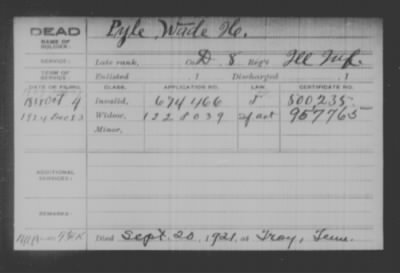 DEAD
NAME OF SOLDIER:
Pyle, Wade H.
SERVICE:
Late rank, Co. D. 8 Reg't Ill Inf.
TERM OF SERVICE:
Enlisted , 1 Discharged , 1
DATE OF FILING. CLASS. APPLICATION NO. LAW. CERTIFICATE NO.
Oct 4 Invalid, 674466 500,235
1921 Dec 23 Widow, 1228039 957765
Minor,
ADDITIONAL SERVICES:
REMARKS:
Died Sept. 20, 1921, at Troy, Tenn.